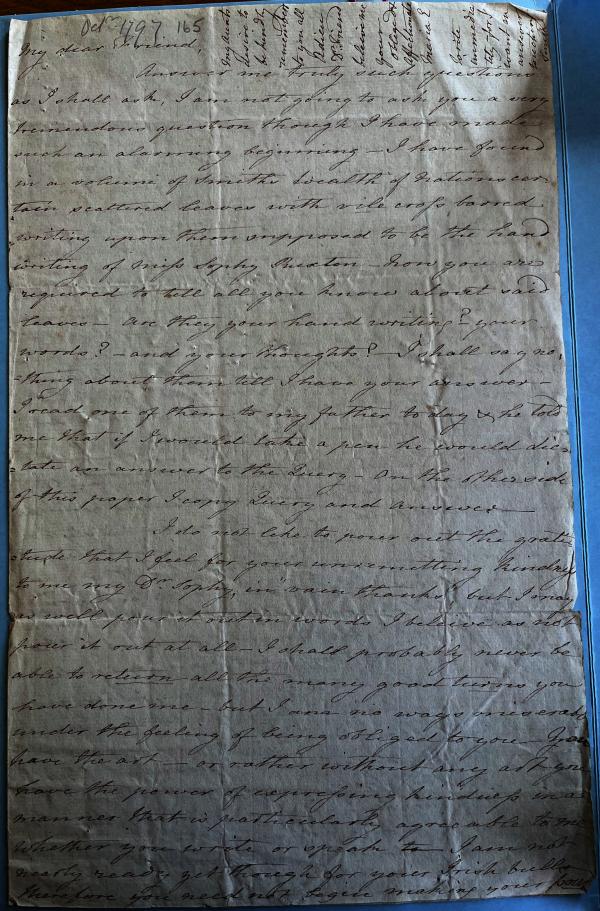 Octr. 1797. 165
My dear Friend,
Answer me truly such questions
as I shall ask, I am not going to ask you a very
tremendous question though I have made
such an alarming beginning – I have found
in a volume of Smith's Wealth of Nations cer
tain scattered leaves with vile cross barred
writing upon them supposed to be the hand
writing of Miss Sophy Ruxton – now you are
required to tell all you know about said
leaves – are they your hand writing? your
words? – and your thoughts? – I shall say no-
-thing about them till I have your answer –
I read one of them to my father to day & he told
me that if I would take a pen he would dic-
-tate an answer to the Query – On the other side
of this paper I copy Query and answer –
I do not like to pour out the grati
-tude that I feel for your unremitting kindness
to me my Dr. Sophy, in vain thanks, but I may
as well pour it out in words I beleive as not
pour it out at all – I shall probably never be
able to return all the many good turns you
have done me – but I am no ways miserable
under the feeling of being obliged to you – You
have the art – or rather without any art you
have the power of expressing kindness in a
manner that is particularly agreeable to me
whether you write or speak to – I am not
nearly ready yet though for your Irish bulls
therefore you need not begin making your
My Aunts
desire to
be kindly
remembered
to you all
Adieu
Dr. friend
beleive me
your
obliged &
affectionate
Maria E
write